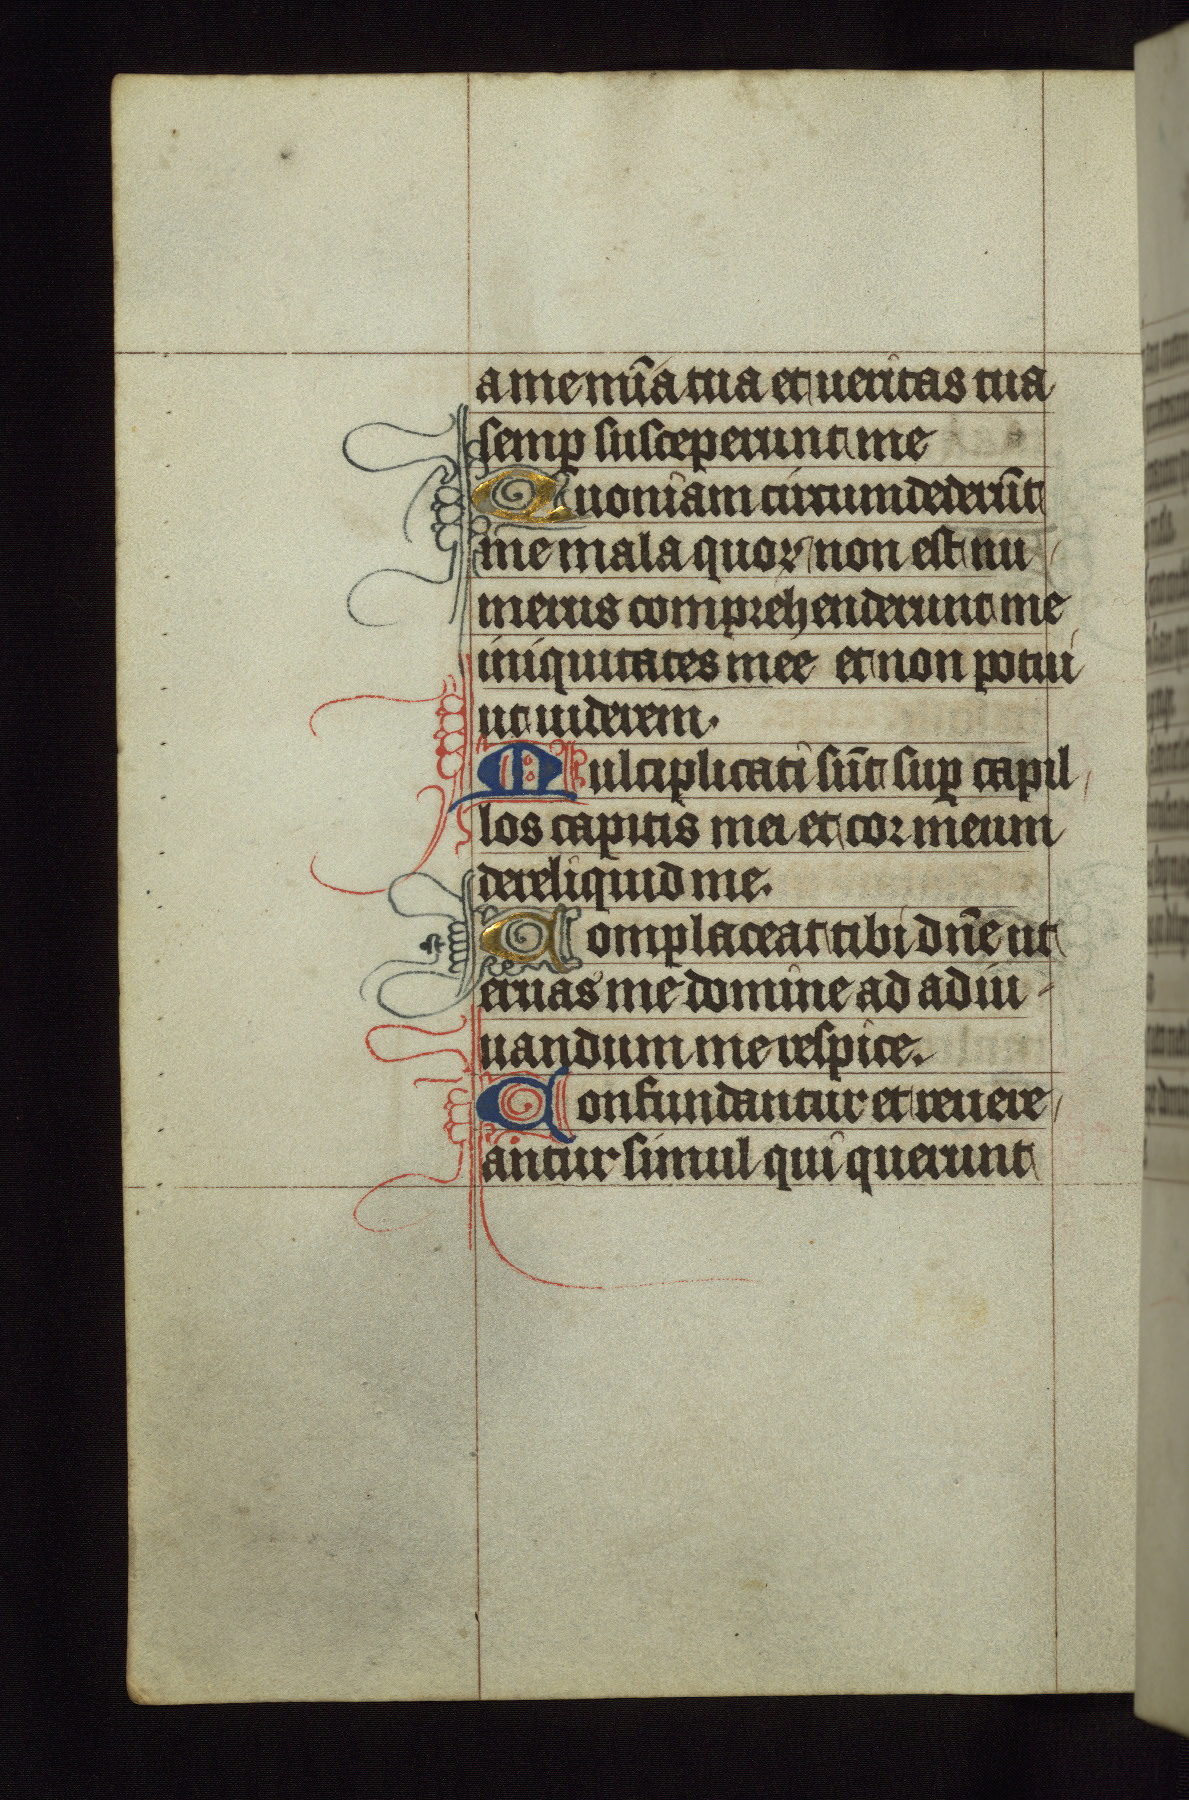 a me mīa tua et ueritas tua
semp susceperunt me
Quoniam circumdederūt
me mala quoꝝ non est nu
merus comprehenderunt me
iniquitates mee et non potui
ut uiderem.
Multiplicati sūt sup capil
los capitis mei et cor meum
dereliquid me.
Complaceat tibi dn̄e ut
eruas me domine ad adiu
uandum me respice.
Confundantur et reuere
antur simul qui querunt